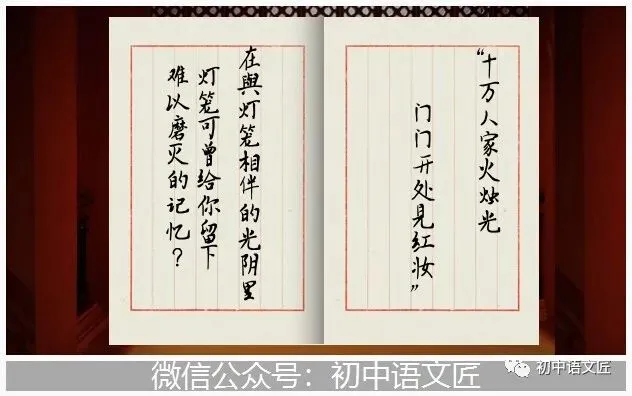 “十万人家火烛光
门门开处见红妆”
在與灯笼相伴的光阴里
灯笼可曾给你留下
难以磨灭的记忆？
初中语文匠
微信公众号：初中语文匠